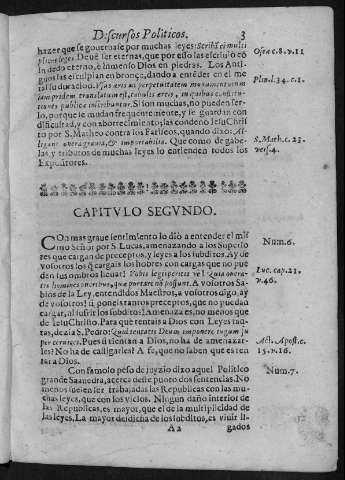 Discursos Politicos. 3
hazer que se gouernasse por muchas leyes: Scribā ei multi
plices leges. Deuē ser eternas, que por esso las escriuiò cō
su dedo eterno, è inmenso Dios en piedras. Los Anti-
guos las esculpian en bronçe, dando a entēder en el me
tal su duraciō. Vsus aeris ad perpetuitatem monumentorum
iam pridem translatus est, tabulis aereis, in quibus constitu-
tiones publicae inciduntur. Si son muchas, no pueden ser-
lo, porque se mudan frequentemente, y se guardan con
dificultad, y con aborrecimiento; las condenò IesuChris
to por S. Matheo contra los Fariseos, quando dixo: Al-
ligant onera grauia, & importabilia. Que como de gabe-
las, y tributos de muchas leyes lo entienden todos los
Expositores.
Oseæ c.8. v.11
Plin. l.34. c.1.
S. Math. c. 23.
vers. 4.
CAPITVLO SEGVNDO.
Con mas graue sentimiento lo diò a entender el mis
mo Señor por S. Lucas, amenazando a los Superio-
res que cargan de preceptos, y leyes a los subditos. Ay de
vosotros los q̄ cargais los hobres con cargas que no pue
den los ombros leuar! Vobis legisperitis væ! Quia onera-
tis homines oneribus, quæ portare nō possunt. A vosotros Sa-
bios de la Ley, entendidos Maestros, a vosotros digo, ay
de vosotros! si poneis tantos preceptos, que no puedan
cargar, ni sufrir los subditos! Amenaza es, no menos que
de IesuChristo. Para què tentais a Dios con Leyes tan-
tas, dezia S. Pedro: Quid tentatis Deum imponere iugum su
per ceruices. Pues si tientan a Dios, no ha de amenazar-
les? No ha de castigarles? A fe, que no saben que es ten-
tar a Dios.
Num.6.
Luc. cap. 11.
v.46.
Act. Apost. c.
15. v.16.
Con famoso peso de juyzio dixo aquel Politico
grande Saauedra, acerca deste punto dos sentencias. No
menos suelen ser trabajadas las Republicas con las mu-
chas leyes, que con los vicios. Ningun daño interior de
las Republicas, es mayor, que el de la multiplicidad de
las leyes. La mayor desdicha de los subditos, es viuir li-
Num.7.
Aa gados